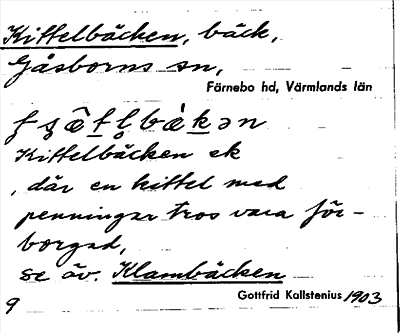 Kittelbäcken, bäck,
Gåsborns sn,
Färnebo hd, Värmlands län
Kittelbäcken ek
, där en kittel med
penningar tros vara för-
borgad,
se äv. Klambäcken
Gottfrid Kallstenius 1903
9